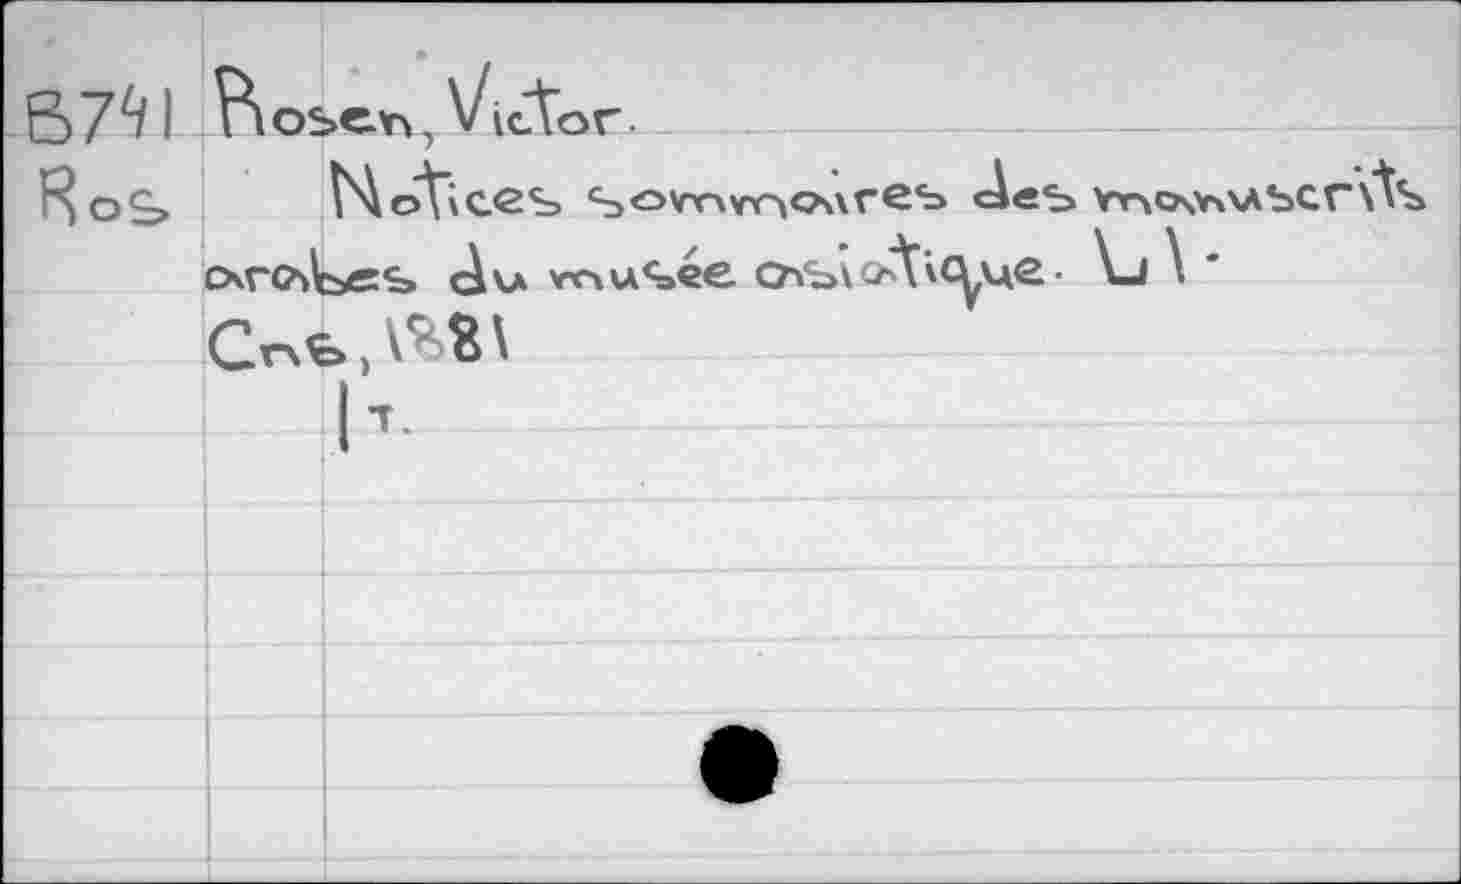 B741 Rosen, Victor.
Ros Notices sommaires des manuscrits
arabes du musée asiatique. Ll 1.
Спб, 1881
1 т.